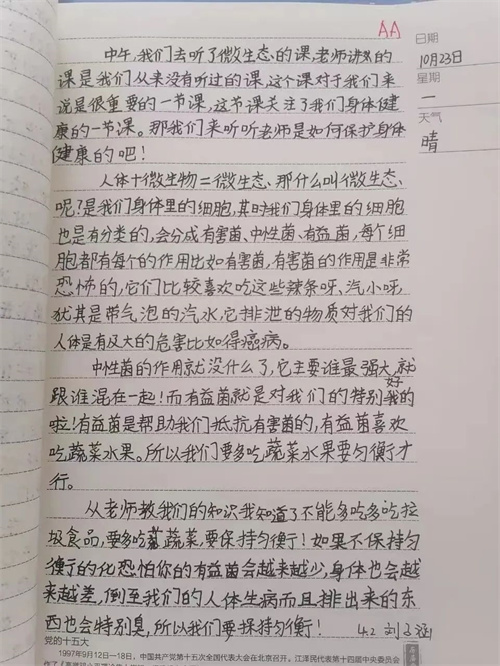 AA
日期
10月23日
星期
一
天气
晴
中午,我们去听了微生态的课,老师讲的
课是我们从来没有听过的课,这个课对于我们来
说是很重要的一节课,这节课关注了我们身体健
康的一节课。那我们来听听老师是如何保护身体
健康的吧!
人体+微生物=微生态、那什么叫微生态、
呢?是我们身体里的细胞,其时我们身体里的细胞
也是有分类的,会分成有害菌、中性菌、有益菌,每个细
胞都有每个的作用比如有害菌,有害菌的作用是非常
恐怖的,它们比较喜欢吃这些辣条呀、汽小呀,
犹其是带气泡的汽水,它排泄的物质对我们的
人体是有大的危害比如得癌病。
中性菌的作用就没什么了,它主要谁最强大,就
跟谁混在一起!而有益菌就是对我们的特别好的
啦!有益菌是帮助我们抵抗有害菌的,有益菌喜欢
吃蔬菜水果。所以我们要多吃蔬菜水果要匀衡才
行。
从老师教我们的知识我知道了不能多吃多吃垃
圾食品,要多吃蔬菜,要保持匀衡!如果不保持匀
衡的化恐怕你的有益菌会越来越少,身体也会越
来越差,倒至我们的人体生病而且排出来的东
西也会特别臭,所以我们要保持匀衡!
4.2 刘
党的十五大
1997年9月12日—18日,中国共产党第十五次全国代表大会在北京召开。江泽民代表第十四届中央委员会